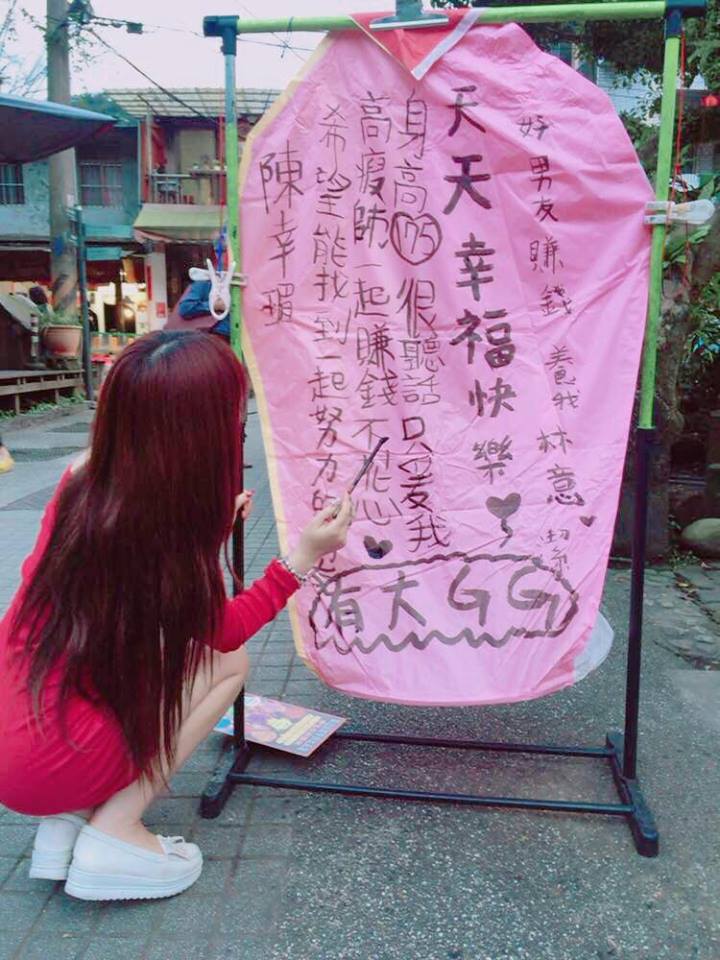 好男友賺錢養我林意
天天幸福快樂
身高175很聽話只愛我
高瘦帥一起賺錢不花心
希望能找到一起努力的
陳幸
有大GG